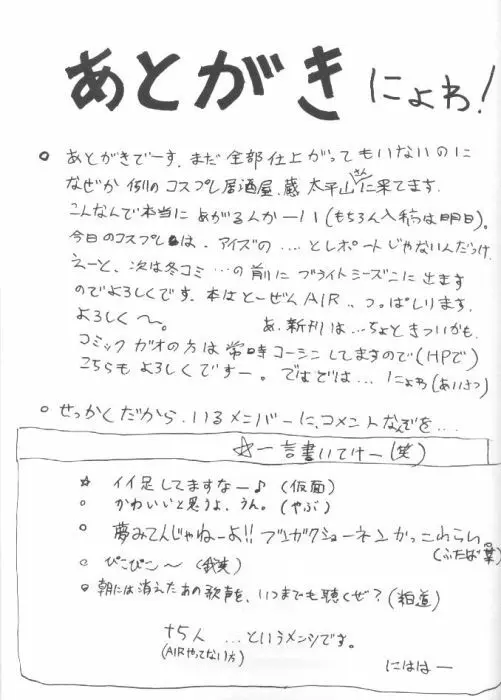 あとがき にょわ!
○ あとがきでーす。まだ全部仕上がってもいないのに
なぜか例のコスプレ居酒屋、蔵 太平山さんに来てます。
こんなんで本当にあがるんかーい(もちろん入稿は明日)。
今日のコスプレは、アイズの…。とレポートじゃないんだっけ
えーと、次は冬コミ…の前にブライトシーズンに出ます
のでよろしくです。本はとーぜんAIR…つっぱしります。
よろしく〜。 あ、新刊は…ちょときついかも。
コミックガオの方は常時コーシンしてますので(HPで)
こちらもよろしくですー。ではでは… にょわ(あいさつ)
○ せっかくだから、いるメンバーに、コメントなんぞを…。
☆一言書いてけー(笑)
☆ イイ足してますなー♪(仮面)
○ かわいいと思うよ、うん。(やぶ)
○ 夢みてんじゃねーよ!!ブンガクショーネンかっこわらい
(ふたば葉)
○ ぴこぴこ〜
○ 朝には消えたあの歌声を、いつまでも聴くぜ?(粕道)
+5人 …というメンツです。
(AIRやってない方)
にははー